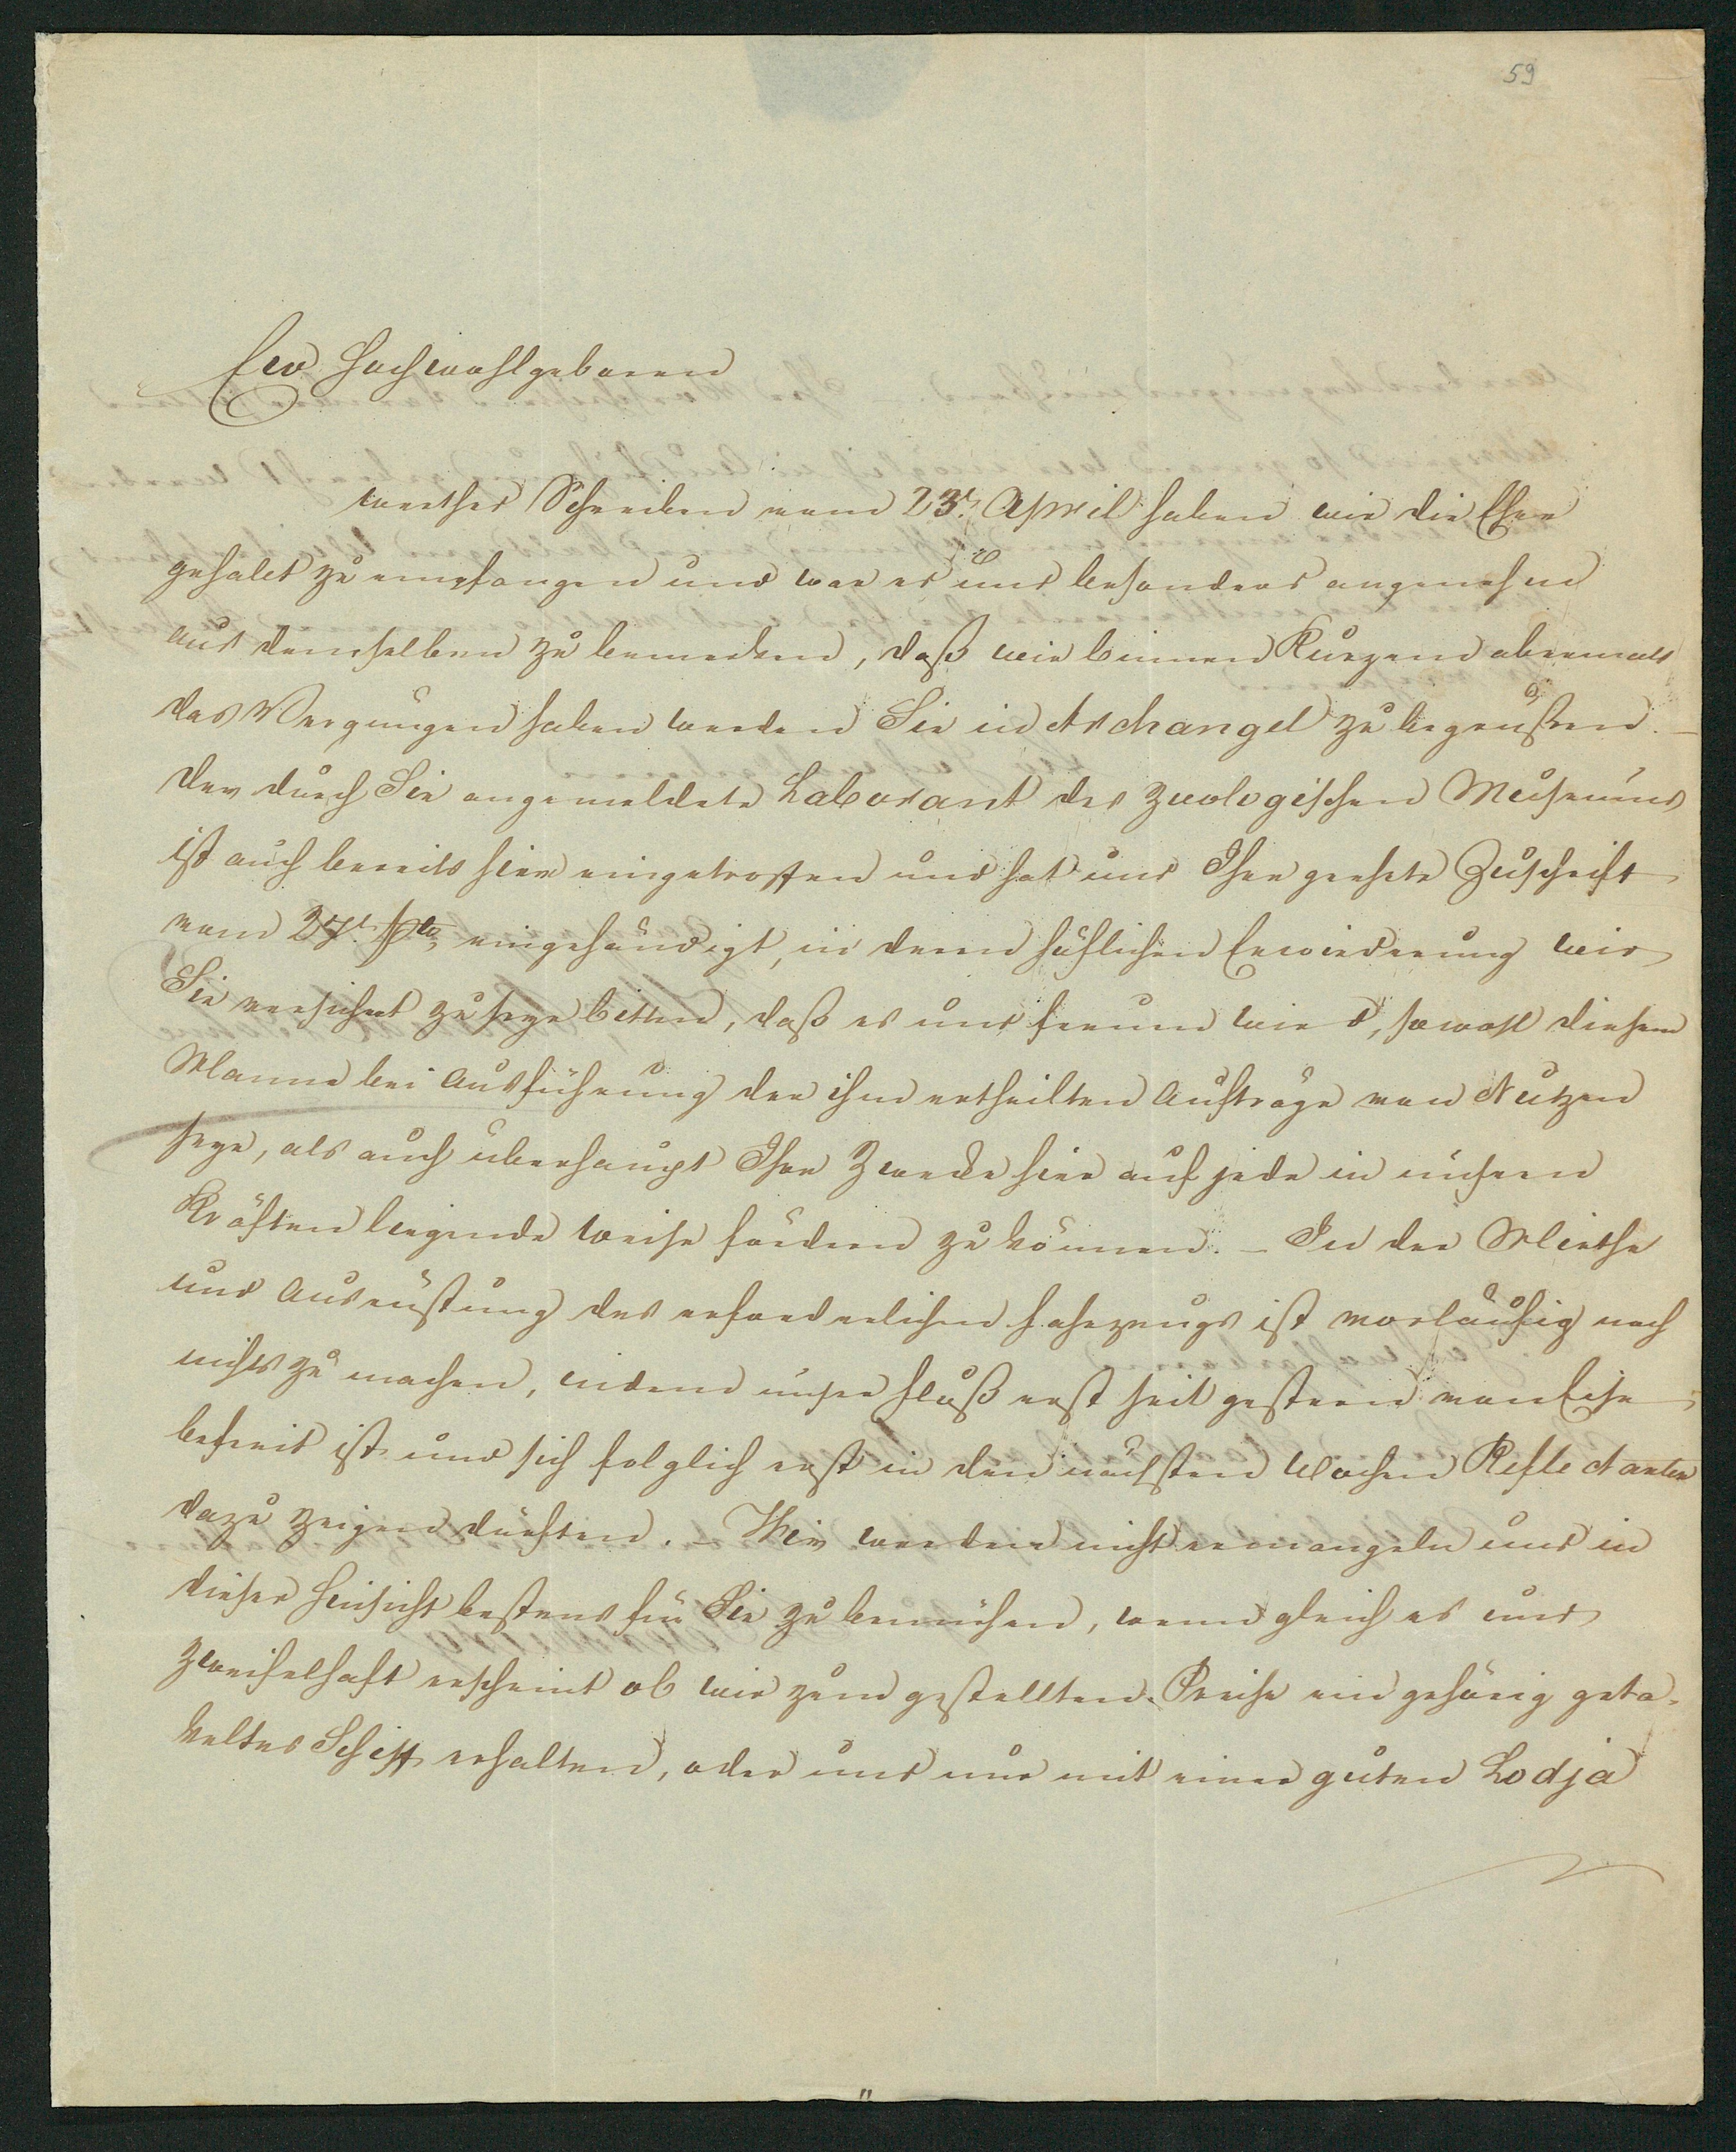 59
Ew Hochwohlgeboren
werthes Schreiben vom 23t. April haben wir die Ehre
gehabt zu empfangen und war es uns besonders angenehm
aus demselben zu bemerken, daß wir binnen Kurzem abermals
das Vergnügen haben werden Sie in Archangel zu begrüßen. –
Der durch Sie angemeldete Laborant des zoologischen Museums
ist auch bereits hier eingetroffen und hat uns Ihre geehrte Zuschrift
vom 27t. eingehändigt, in deren höflichen Erwiederung wir
Sie versichert zu seyn bitten, daß es uns freuen wird, sowohl diesem
Manne bei Ausführung der ihm ertheilten Aufträge von Nutzen
seyn, als auch überhaupt Ihre Zwecke hier auf jede in unsern
Kräften liegende Weise fördern zu können. – In der Miethe
und Ausrüstung des erforderlichen Fahrzeugs ist vorläufig noch
nichts zu machen, indem unser Fluß erst seit gestern vom Eise
befreit ist und sich folglich erst in den nächsten Wochen Reflectanten
dazu zeigen dürften. – Wir werden nicht ermangeln uns in
dieser Hinsicht bestens für Sie zu bemühen, wenn gleich es uns
zweifelhaft erscheint ob wir zum gestellten Preise ein gehörig geta-
keltes Schiff erhalten, oder uns nur mit einer guten Lodja